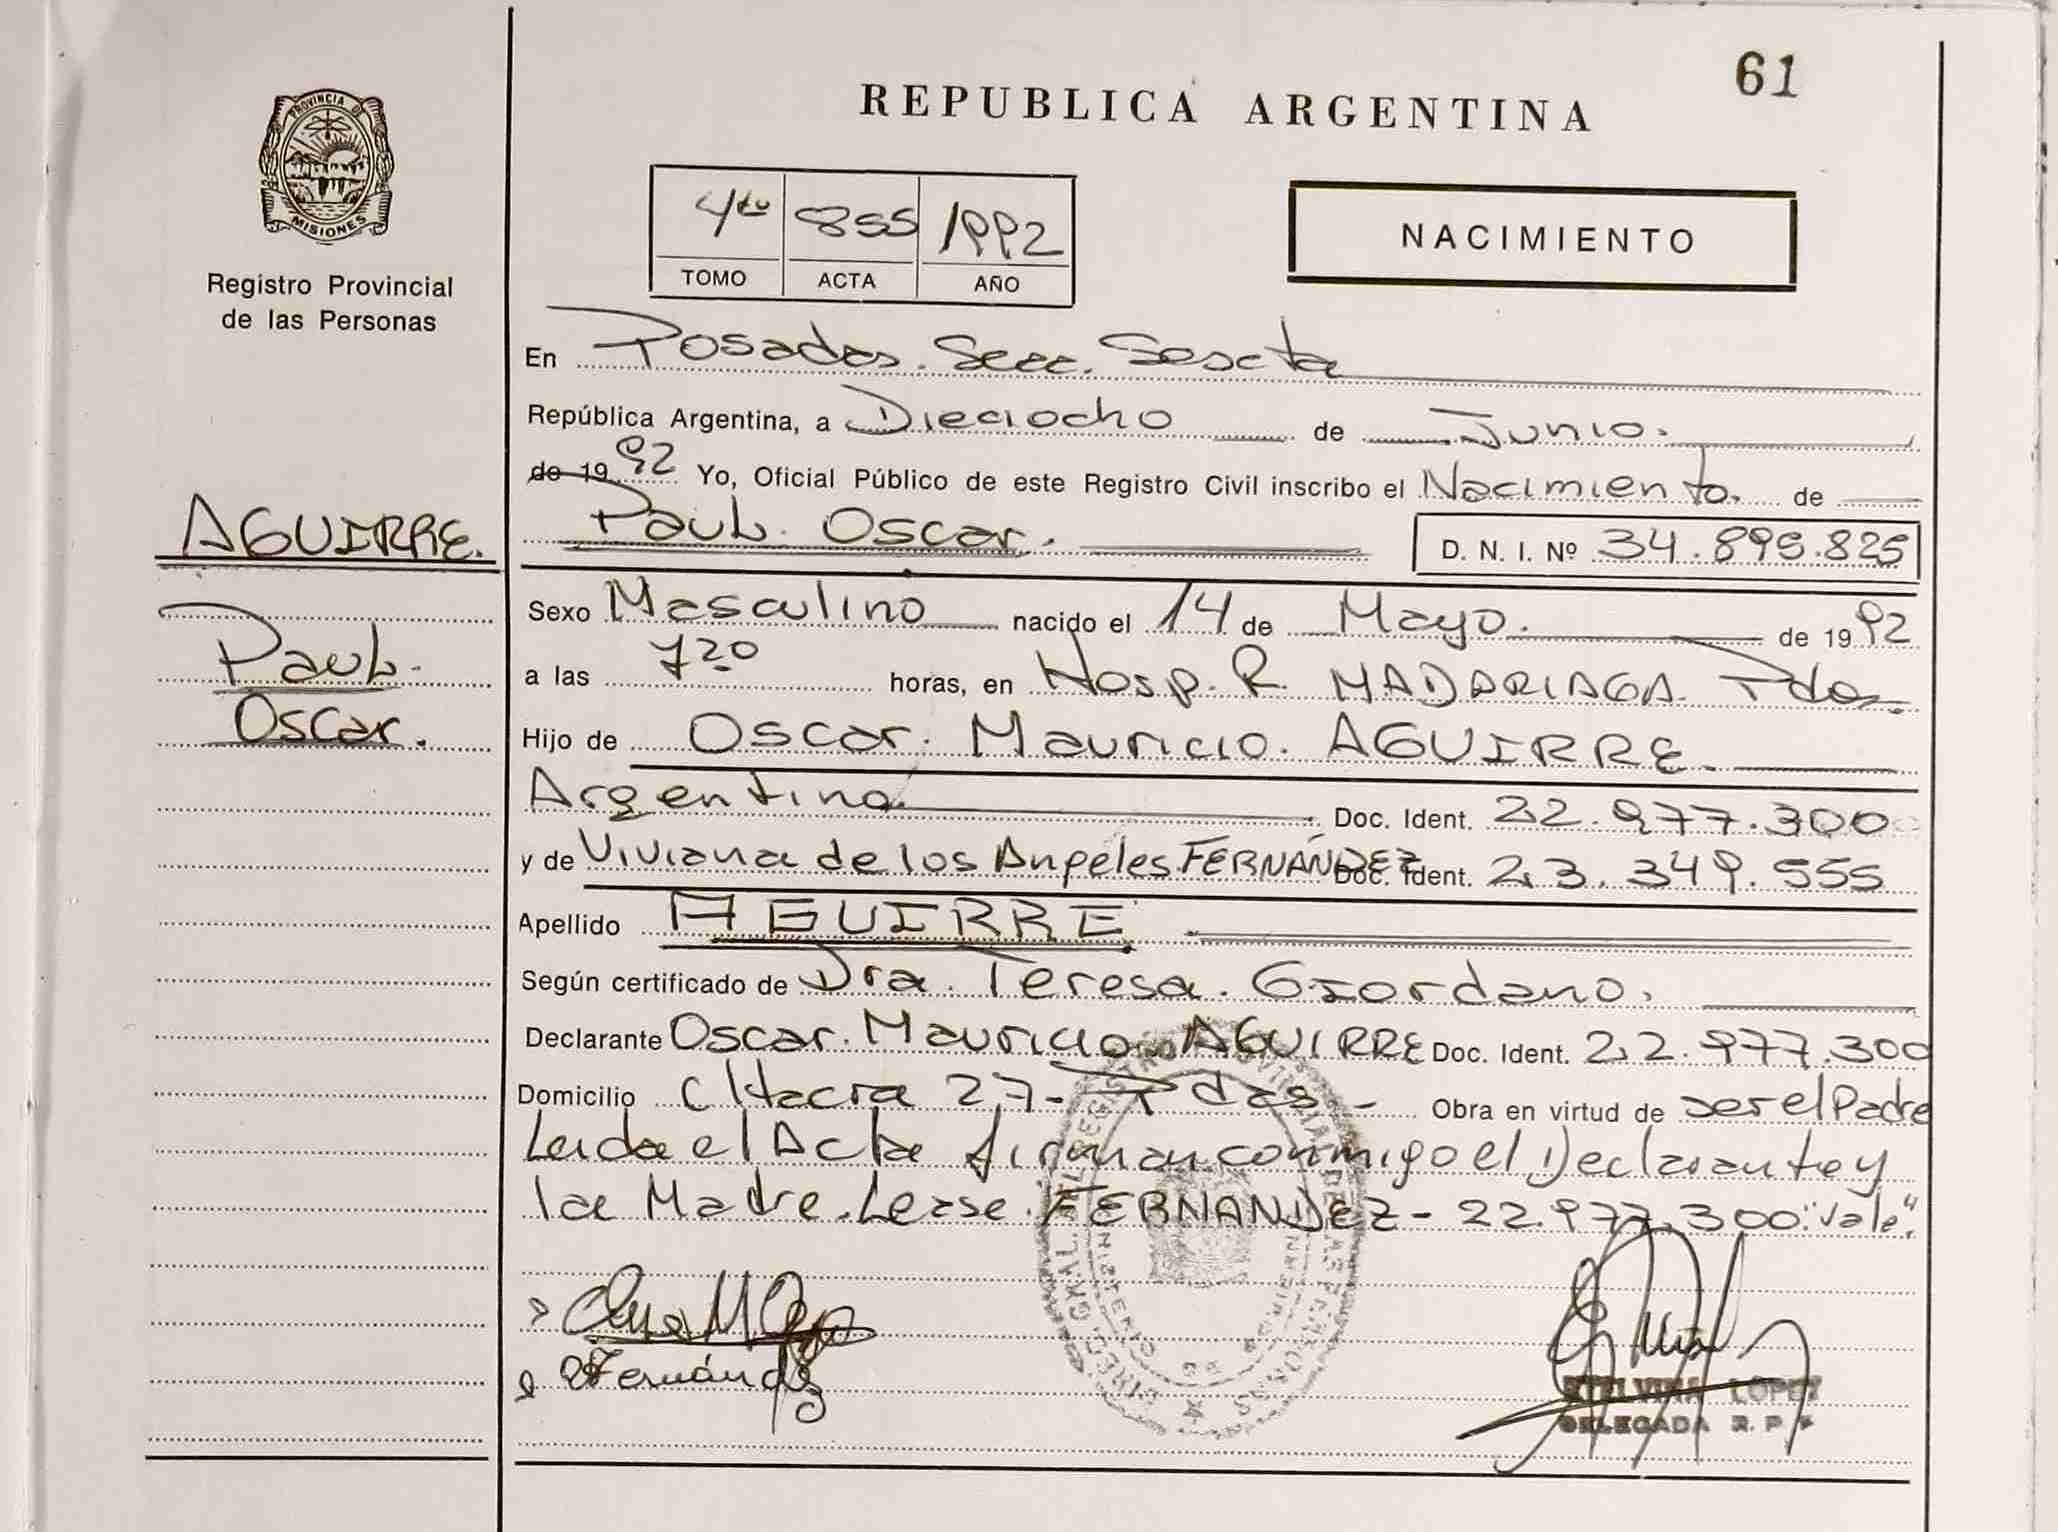 61
REPUBLICA ARGENTINA
PROVINCIA DE
MISIONES
Registro Provincial
de las Personas
4to 855 1992
TOMO ACTA AÑO
NACIMIENTO
En Posadas. Secc. Sexta
República Argentina, a Dieciocho de Junio.
de 19 92 Yo, Oficial Público de este Registro Civil inscribo el Nacimiento. de
AGUIRRE.
Paul. Oscar. D. N. I. Nº 34.895.825
Sexo Masculino nacido el 14 de Mayo. de 19 92
Paul.
Oscar.
a las 7 20 horas, en Hosp. R. MADARIAGA. Pdas.
Hijo de Oscar. Mauricio. AGUIRRE.
Argentino. Doc. Ident. 22.977.300
y de Viviana de los Angeles FERNÁNDEZ Doc. Ident. 23.349.555
Apellido AGUIRRE
Según certificado de Dra. Teresa. Giordano.
Declarante Oscar. Mauricio. AGUIRRE Doc. Ident. 22.977.300
Domicilio CHacra 27- Pdas - Obra en virtud de ser el Padre
Leida el Acta firman conmigo el Declarante y
la Madre. Lease. FERNANDEZ - 22.977.300:"Vale".
Fernández
ETELVINA LOPEZ
DELEGADA R. P. P